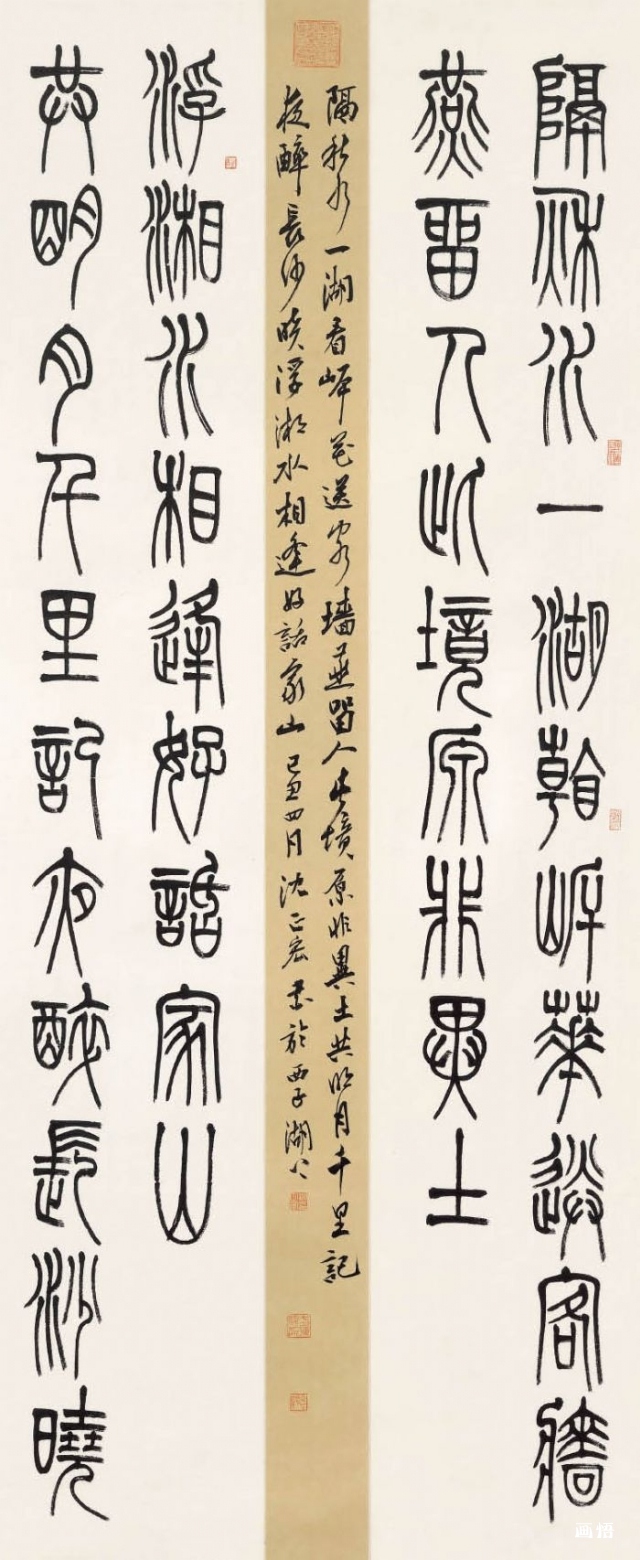 隔秌水一湖看岸華送客牆
燕畱人此境原非異土
共明月千里記夜醉長沙曉
浮湘水相逢好話家山
隔秋水一湖看岸花送客墻燕留人此境原非異土共明月千里記
夜醉長沙曉浮湘水相逢好話家山己丑四月沈正宏書於西子湖上
画悟